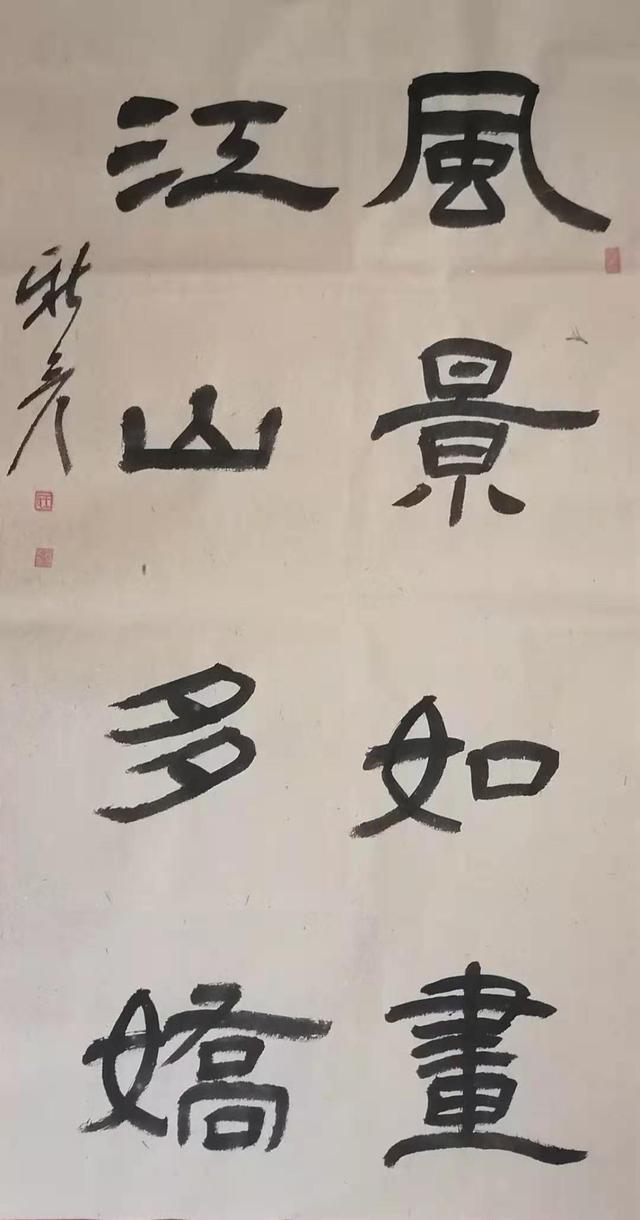 風景如畫
江山多嬌